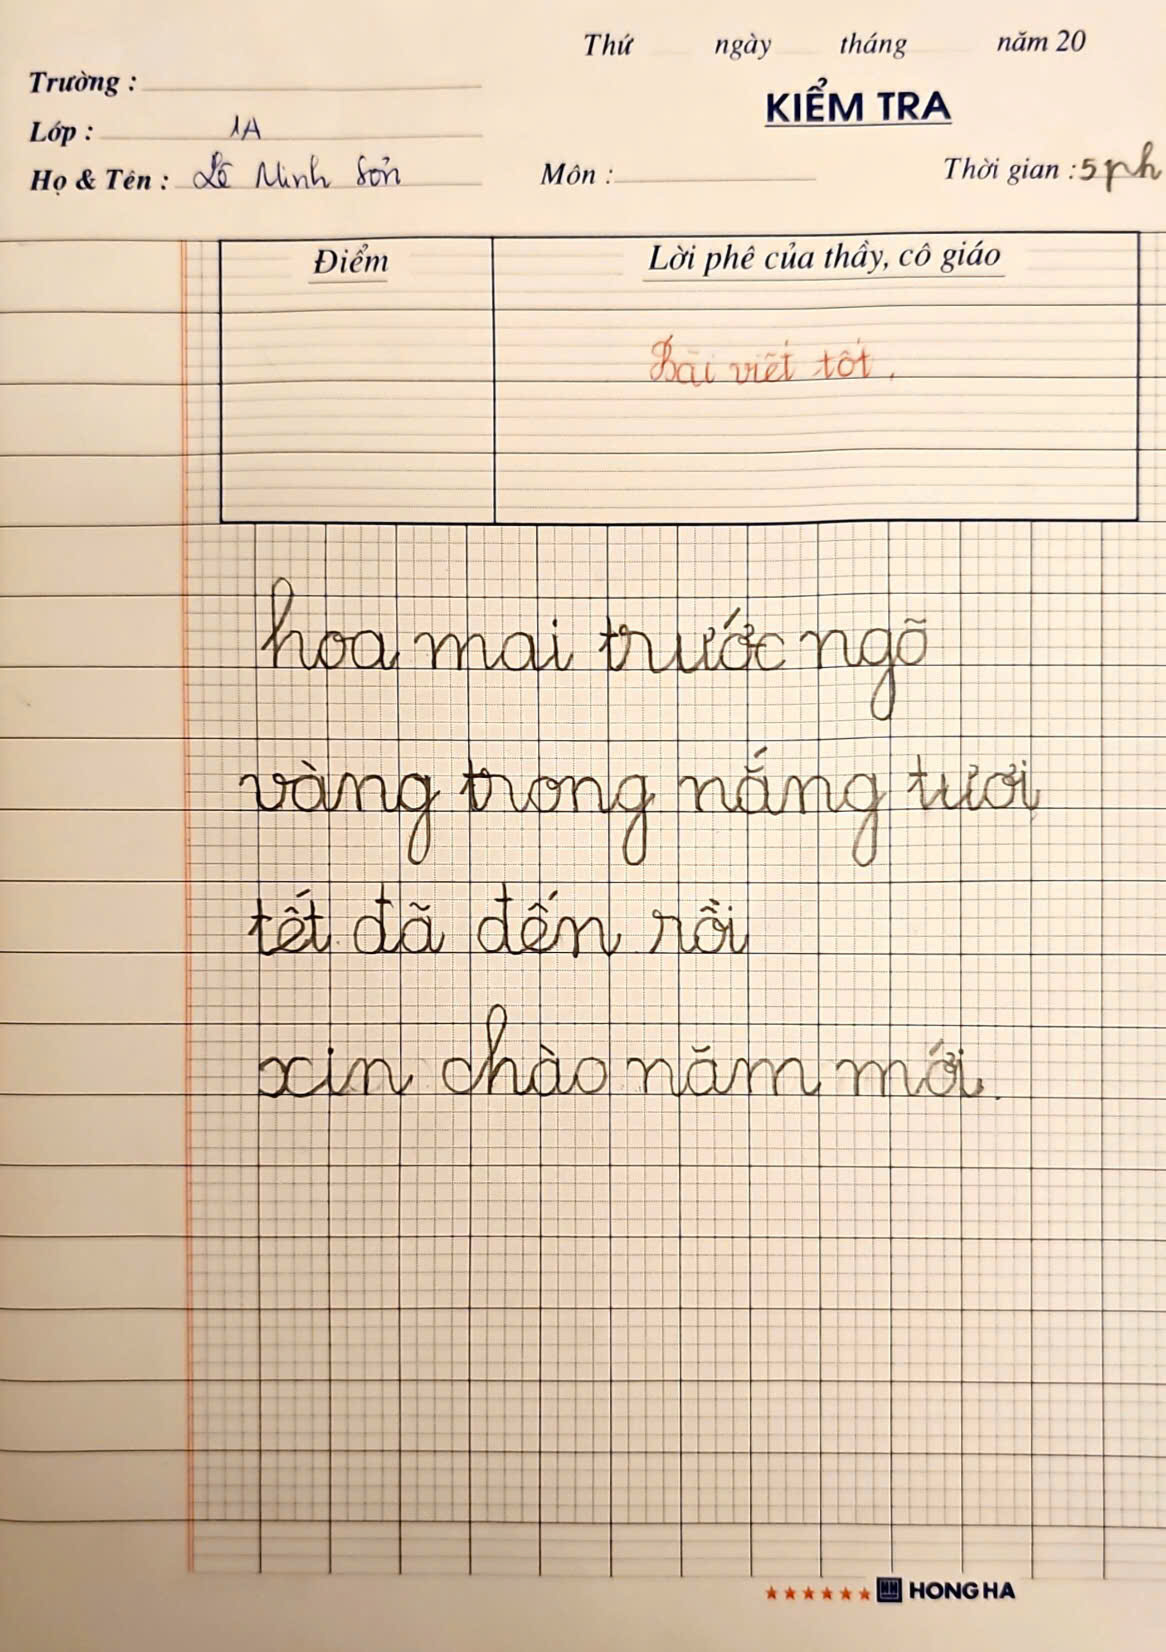 Thứ ngày tháng năm 20
Trường :
KIỂM TRA
Lớp : 1A
Họ & Tên : Lê Minh Sơn
Môn :
Thời gian : 5 ph
Điểm
Lời phê của thầy, cô giáo
Bài viết tốt.
hoa mai trước ngõ
vàng trong nắng tươi
tết đã đến rồi
xin chào năm mới.
HONG HA